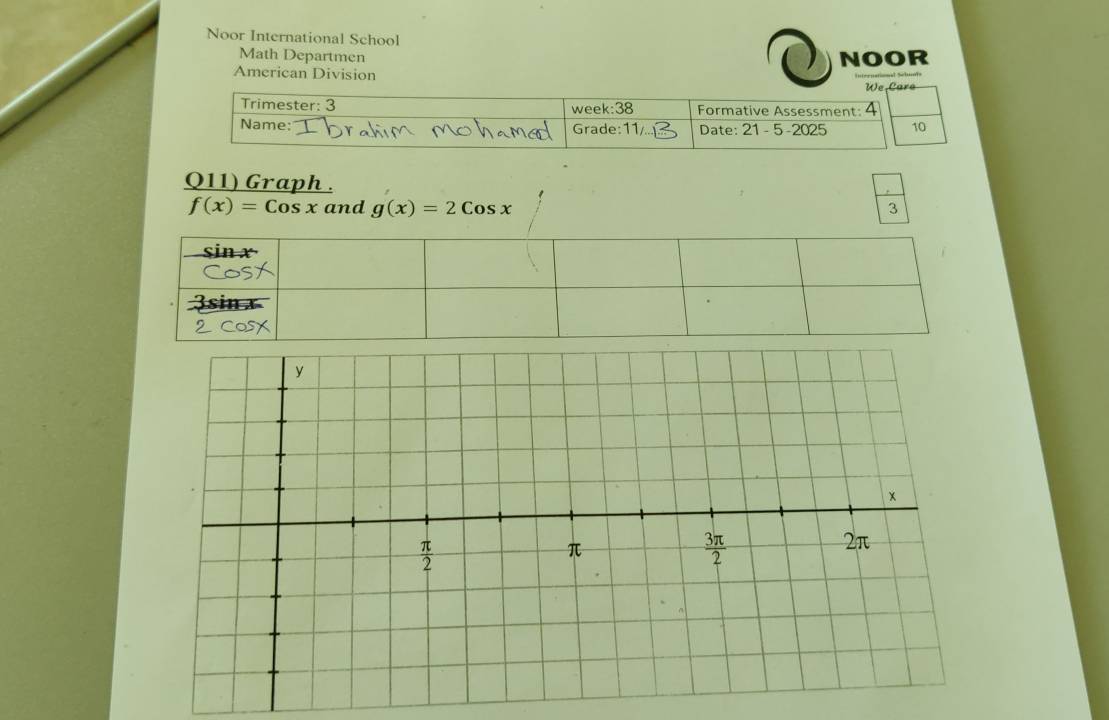 Noor International School
Math Departmen
American Division
NOOR
International Schools
We Care
Trimester: 3 week:38 Formative Assessment: 4
Name: Ibrahim Mohamed Grade:11/...B Date: 21 - 5 -2025
10
Q11) Graph .
f(x) = Cos x and g(x) = 2 Cos x
3
sin x
Cosx
3sin x
2 cosx
y
x
π/2 π 3π/2 2π